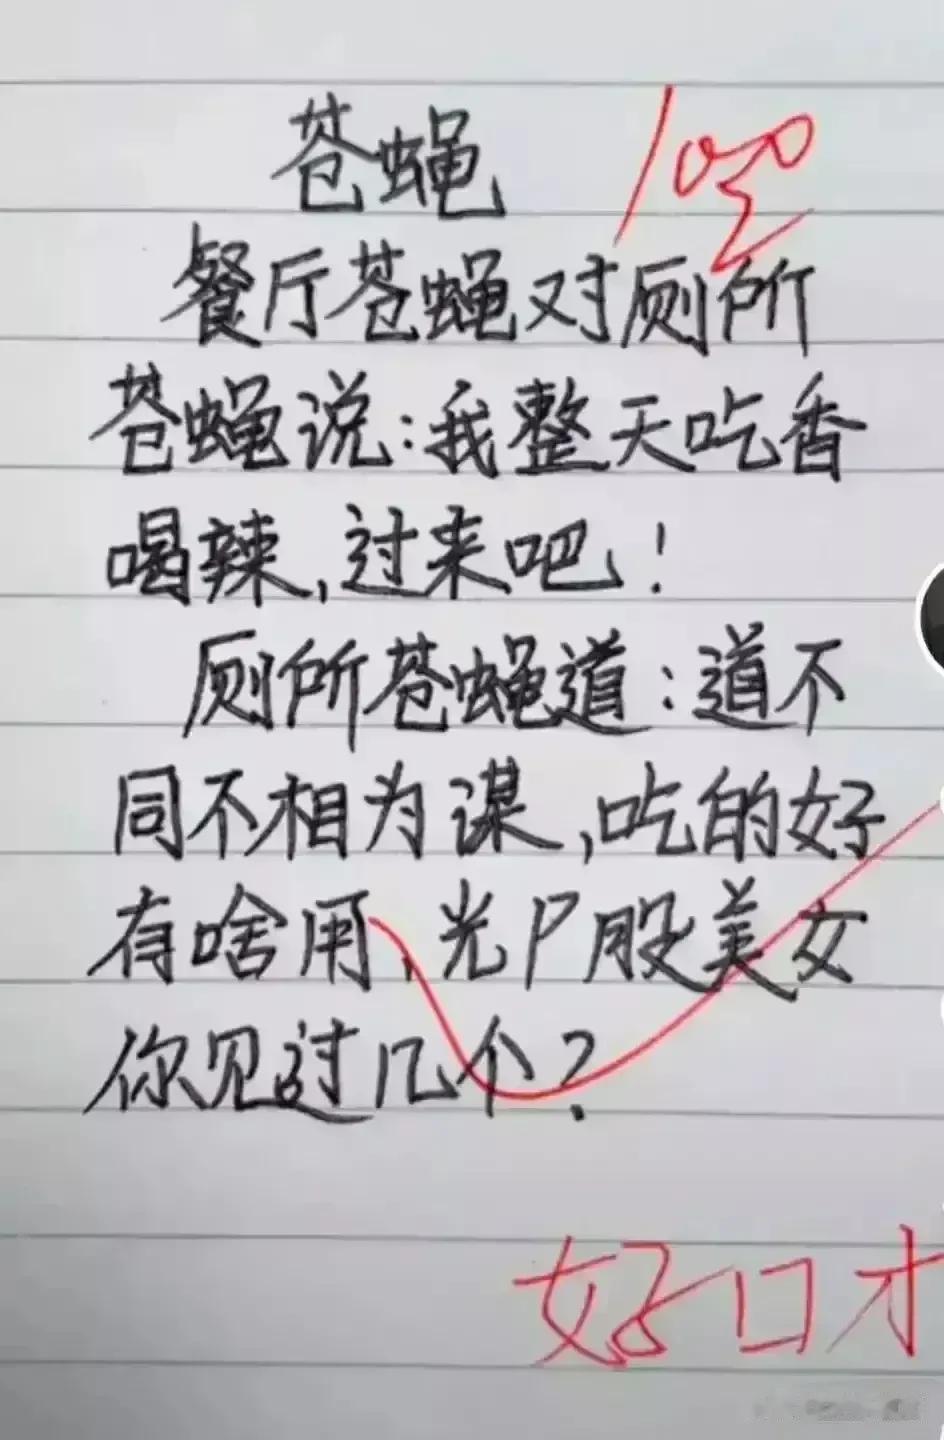 苍蝇
100
餐厅苍蝇对厕所
苍蝇说:我整天吃香
喝辣,过来吧!
厕所苍蝇道:道不
同不相为谋,吃的好
有啥用,光P股美女
你见过几个?
好口才